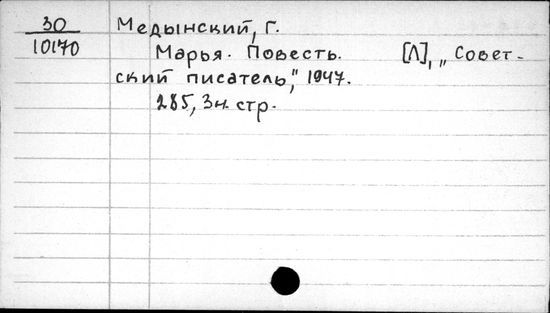 30
10170
Медынский, Г.
Марья. Повесть. [Л], „Совет-
ский писатель," 1947.
285, 3 н. стр.